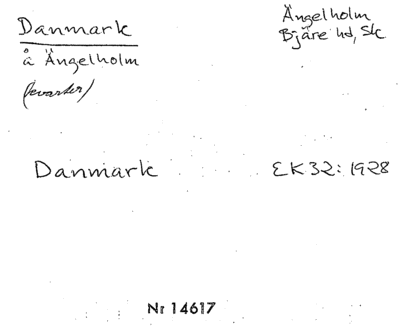 Danmark
å Ängelholm
(kvarter)
Ängelholm
Bjäre hd, Sk
Danmark
EK32: 1928
Nr 14617